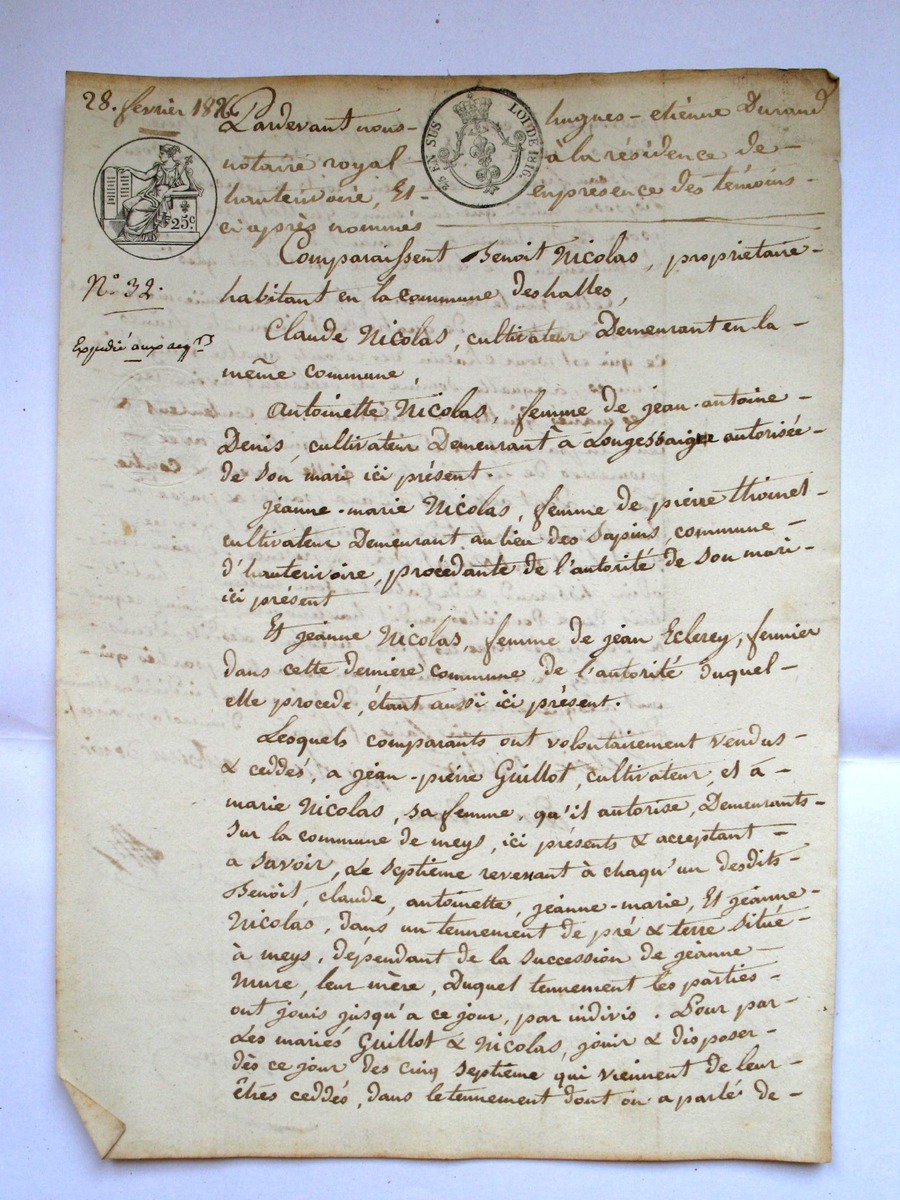 28. fevrier 1826
Pardevant nous hugues-etienne Durand
notaire royal à la résidence de
hauterivoire, Et enprésence des témoins
ci après nommés
25 EN SUS LOI DE 1816
25c.
N.o 32.
Expédié aux acq.rs
Comparaissent Benoit Nicolas, proprietaire
habitant en la commune des halles,
Claude Nicolas, cultivateur Demeurant en la
même commune,
antoinette Nicolas, femme de jean-antoine
Denis, cultivateur Demeurant à Longessaigne autorisée
de son mari ici présent.
jeanne-marie Nicolas, femme de pierre thoinet
cultivateur Demeurant au lieu des Sapins, commune
d'hauterivoire, procédante de l'autorité de son mari
ici présent
Et jeanne Nicolas, femme de jean Eclerey, fermier
dans cette derniere commune, de l'autorité duquel
elle procede, étant aussi ici présent.
Lesquels comparants ont volontairement vendus
& ceddés, a jean-pierre Guillot, cultivateur, et à
marie Nicolas, sa femme, qu'il autorise, Demeurants
sur la commune de meys, ici présents & acceptant
a savoir, Le septième revenant à chaqu'un desdits
Benoit, claude, antoinette, jeanne-marie, Et jeanne
Nicolas, dans un tennement de pré & terre situé
à meys, dépendant de la succession de jeanne
mure, leur mère, Duquel tennement les parties
ont jouis jusqu'a ce jour, par indivis. Pour par
Les mariés Guillot & Nicolas, jouir & disposer
dès ce jour des cinq septième qui viennent de leur
êtres ceddés, dans le tennement dont on a parlé de